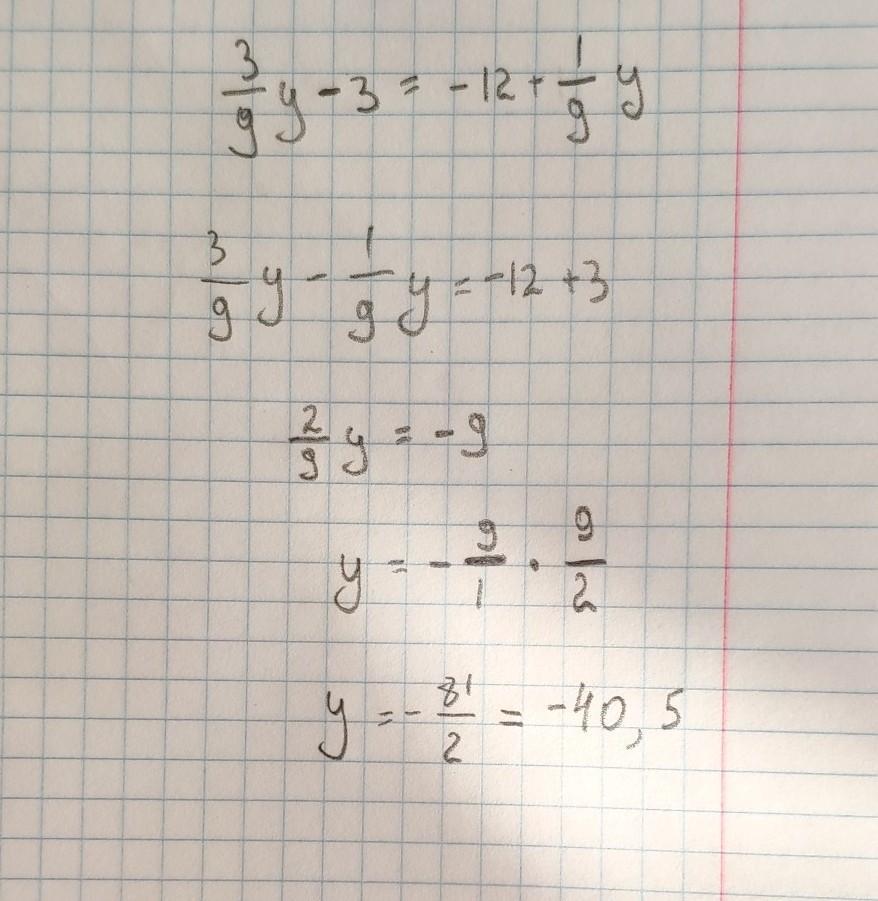 3/9 y - 3 = -12 + 1/9 y
3/9 y - 1/9 y = -12 + 3
2/9 y = -9
y = - 9/1 · 9/2
y = - 81/2 = -40,5